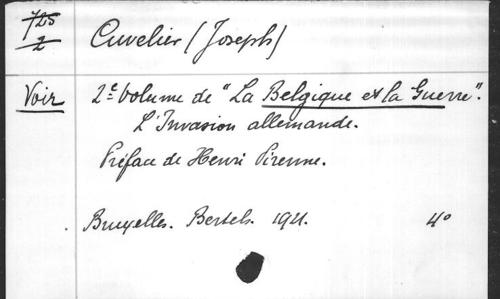 725
2
Cuvelier (Joseph)
Voir 2e Volume de "La Belgique et la Guerre".
L'Invasion allemande.
Préface de Henri Pirenne.
Bruxelles. Bertels. 1921. 4°